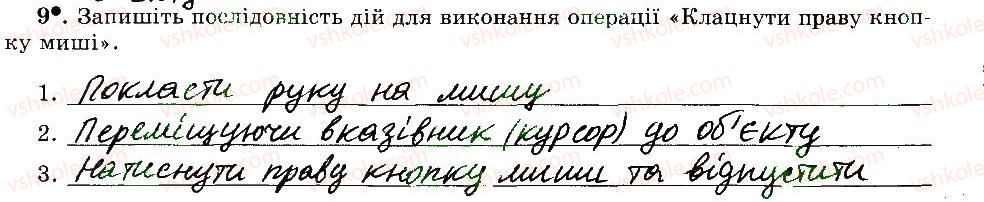 9•. Запишіть послідовність дій для виконання операції «Клацнути праву кноп-
ку миші».
1. Покласти руку на мишу
2. Переміщуючи вказівник (курсор) до об'єкту
3. Натиснути праву кнопку миши та відпустити